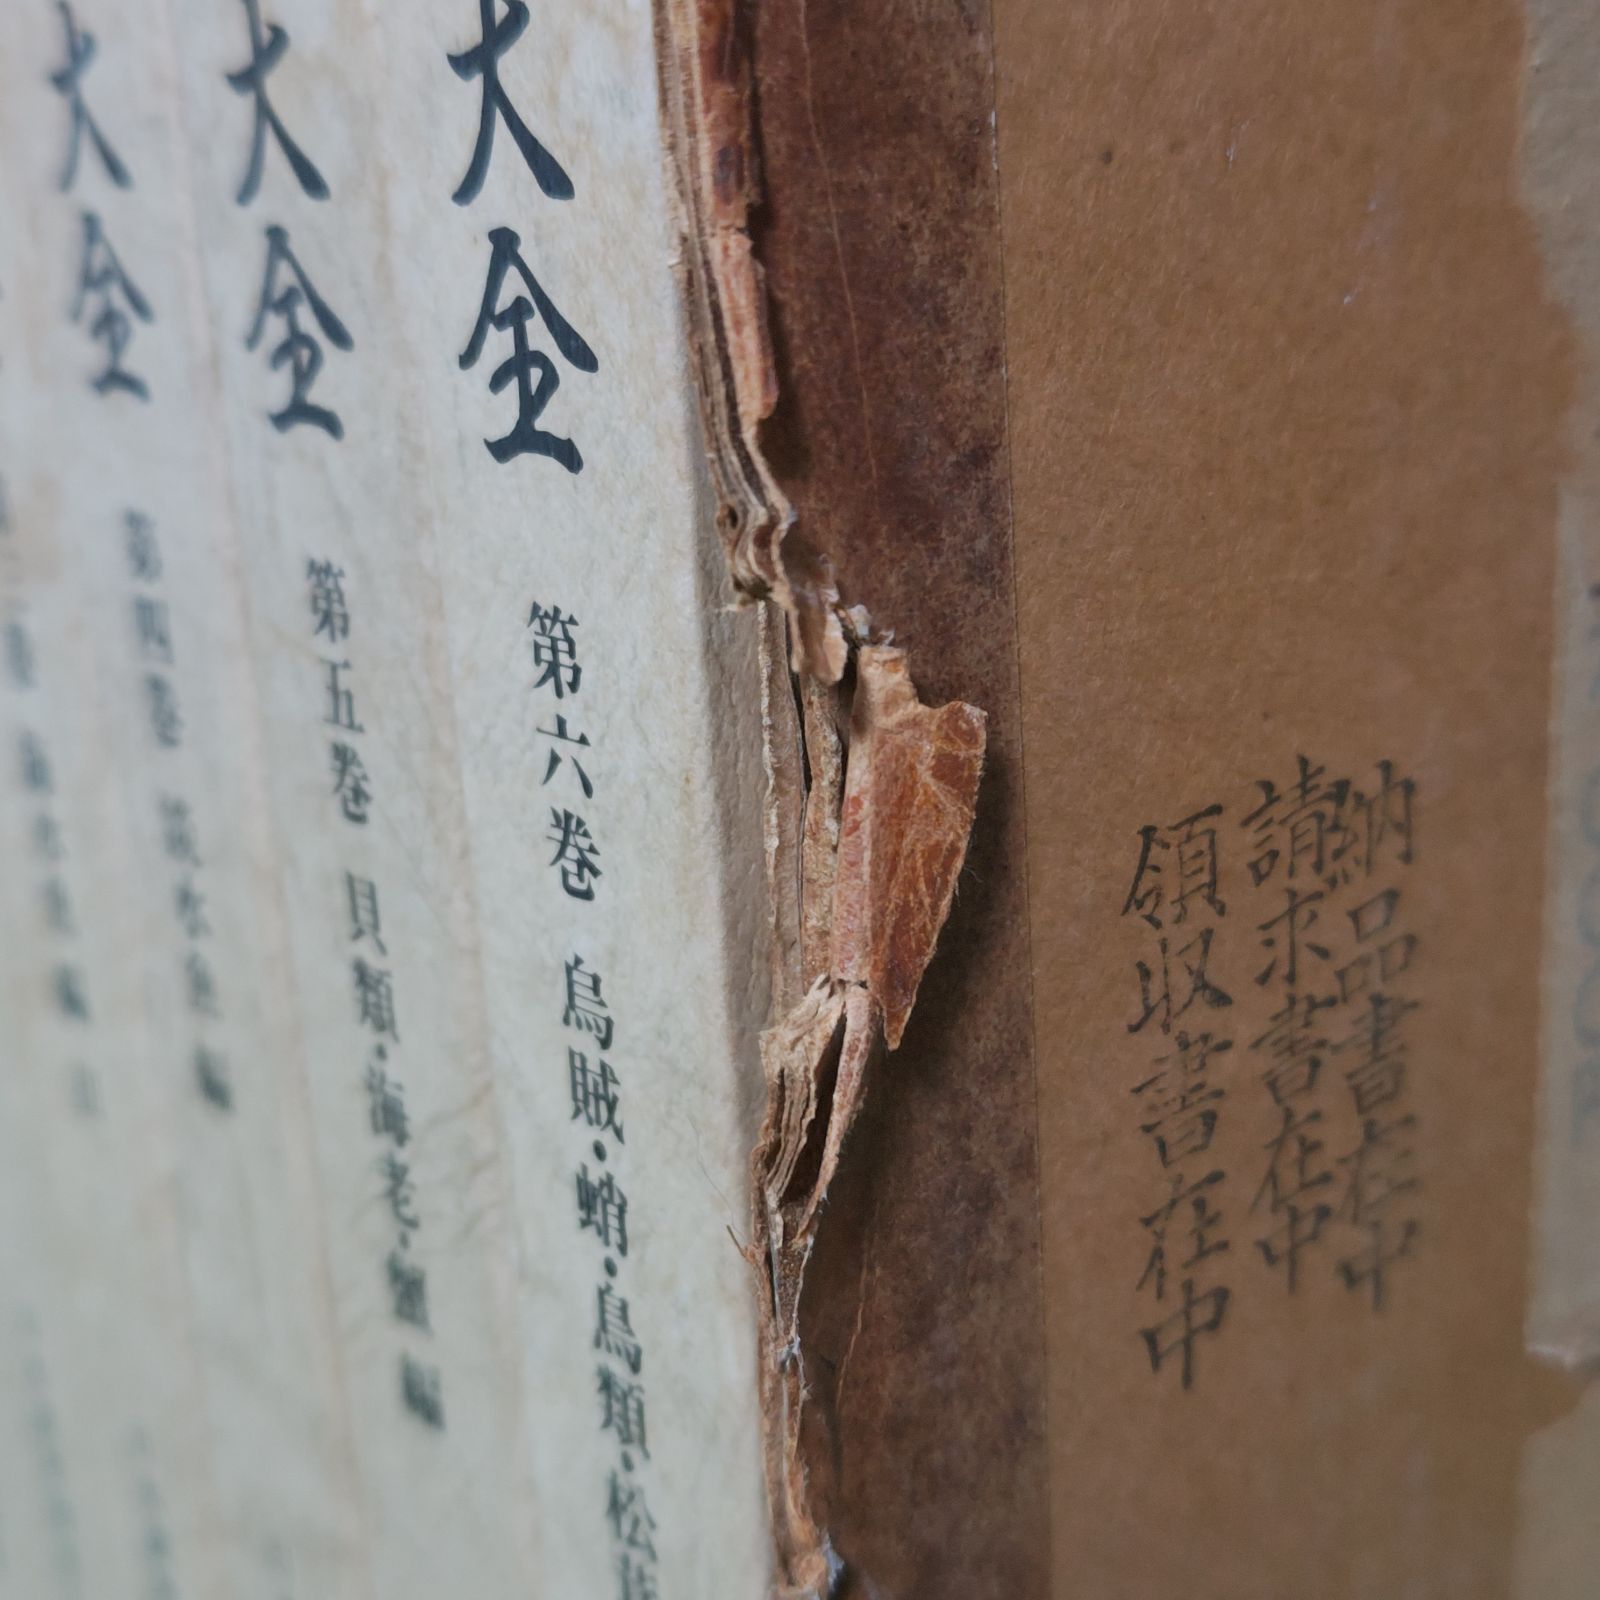 納品書在中
請求書在中
領収書在中
大全 第六巻 烏賊・蛸・鳥類・松
大全 第五巻 貝類・海老・蟹編
大全 第四巻